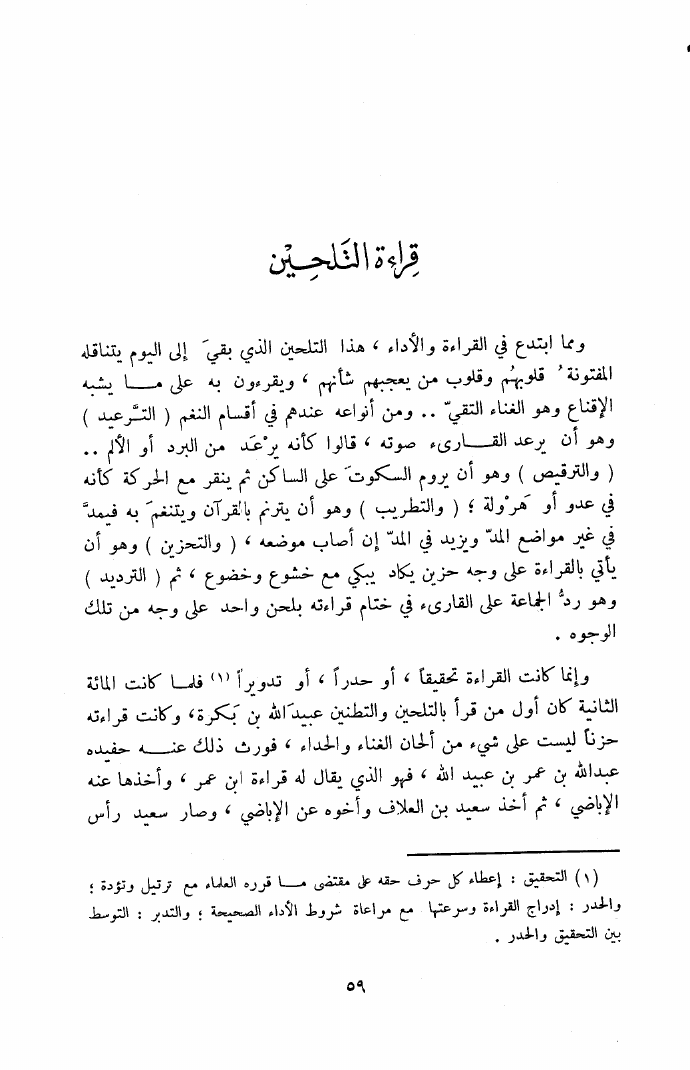 قِراءة التَّلحِيْن
ومما ابتدع في القراءة والأداء ، هذا التلحين الذي بقيَ إلى اليوم يتناقله
المفتونة ُ قلوبهُم وقلوب من يعجبهم شأنهم ، ويقرءون به على مـــا يشبه
الإقناع وهو الغناء التقيّ .. ومن أنواعه عندهم في أقسام النغم ( التَّرعيد )
وهو أن يرعد القـــارىء صوته ، قالوا كأنه يرْعَد من البرد أو الألم ..
( والترقيص ) وهو أن يروم السكوتَ على الساكن ثم ينقر مع الحركة كأنه
في عدو أو هَرْولة ؛ ( والتطريب ) وهو أن يترنم بالقرآن ويتنغمَ به فيمدَّ
في غير مواضع المدّ ويزيد في المدّ إن أصاب موضعه ، ( والتحزين ) وهو أن
يأتي بالقراءة على وجه حزين يكاد يبكي مع خشوع وخضوع ، ثم ( الترديد )
وهو ردُّ الجماعة على القارىء في ختام قراءته بلحن واحد على وجه من تلك
الوجوه .
وإنما كانت القراءة تحقيقاً ، أو حدراً ، أو تدويراً (١) فلمـا كانت المائة
الثانية كان أول من قرأ بالتلحين والتطنين عبيدَالله بن بَكرة، وكانت قراءته
حزناً ليست على شيء من ألحان الغناء والحداء ، فورث ذلك عنـــه حفيده
عبدالله بن عمر بن عبيد الله ، فهو الذي يقال له قراءة ابن عمر ، وأخذها عنه
الإباضي ، ثم أخذ سعيد بن العلاف وأخوه عن الإباضي ، وصار سعيد رأس
(١) التحقيق : إعطاء كل حرف حقه على مقتضى مـــا قرره العلماء مع ترتيل وتؤدة ؛
والحدر : إدراج القراءة وسرعتها مع مراعاة شروط الأداء الصحيحة ؛ والتدبر : التوسط
بين التحقيق والحدر .
٥٩